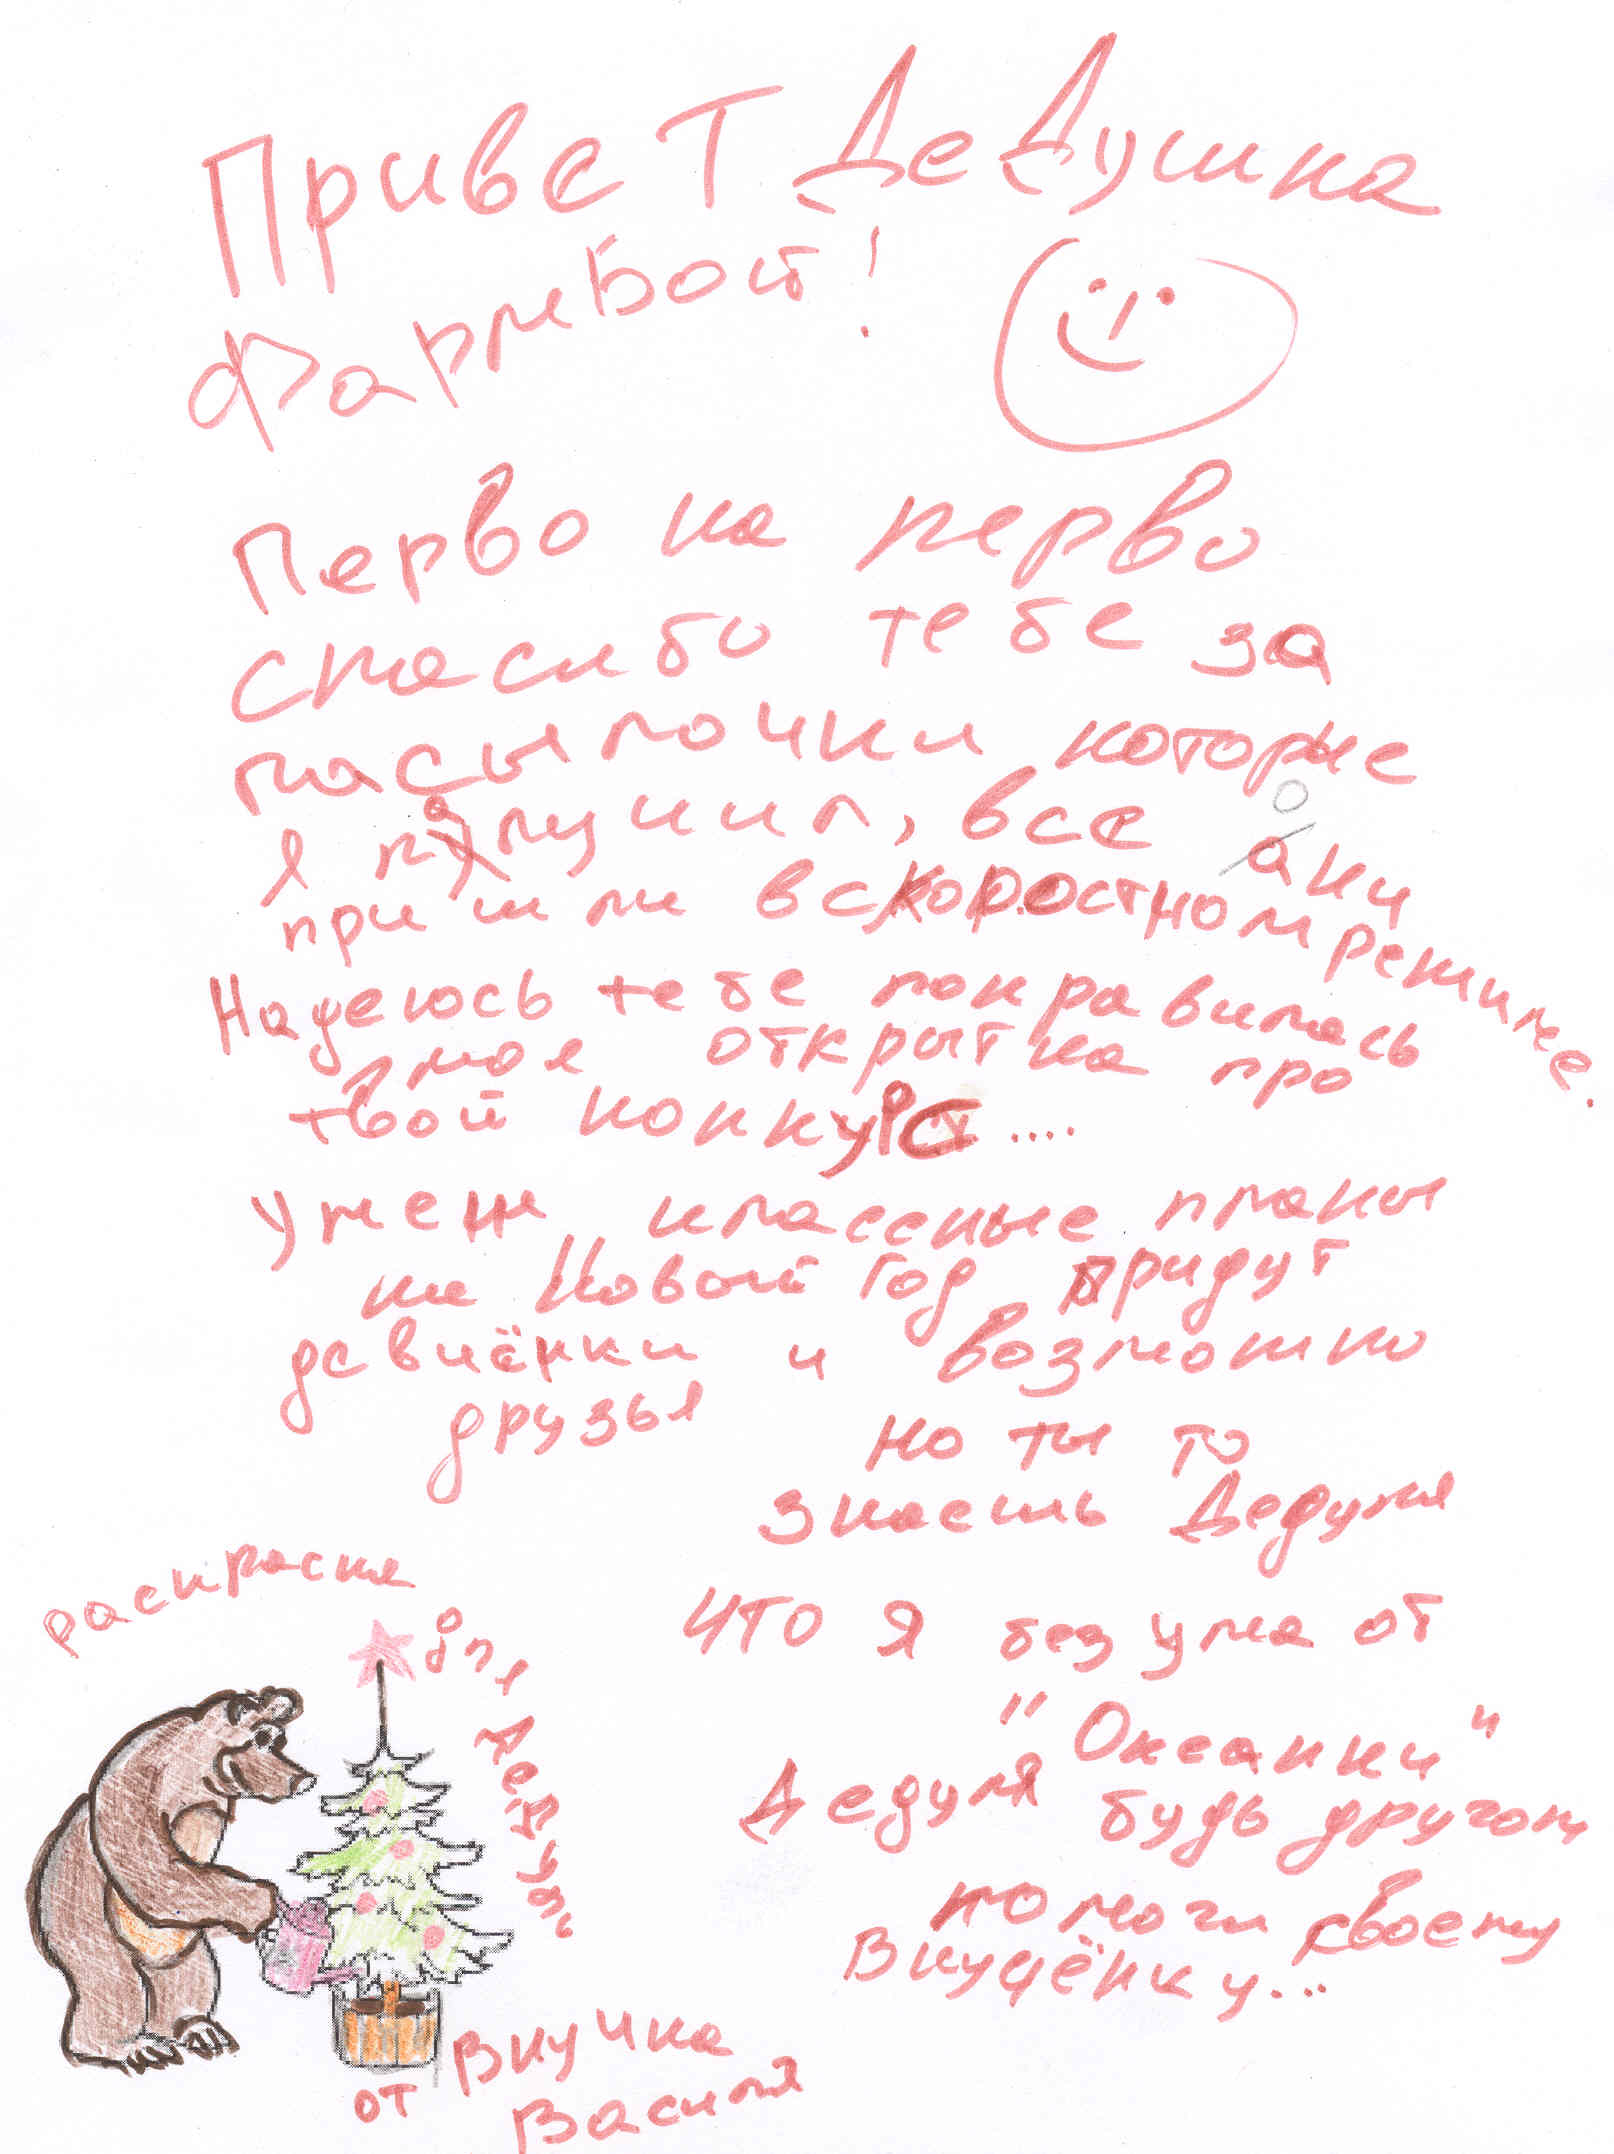 Привет Дедушка
Фармбой!
Перво на перво
спасибо тебе за
пасылочки которые
я палучил, все они
пришли в скоростном режиме.
Надеюсь тебе понравилась
моя открытка про
твой конкурс....
У меня классные планы
на Новый Год придут
девчёнки и возможно
друзья
но ты то
знаешь Дедуля
что я без ума от
"Океанки"
Дедуля будь другом
помоги своему
внучёнку...
раскраска
для Дедули
от Внучка
Василя